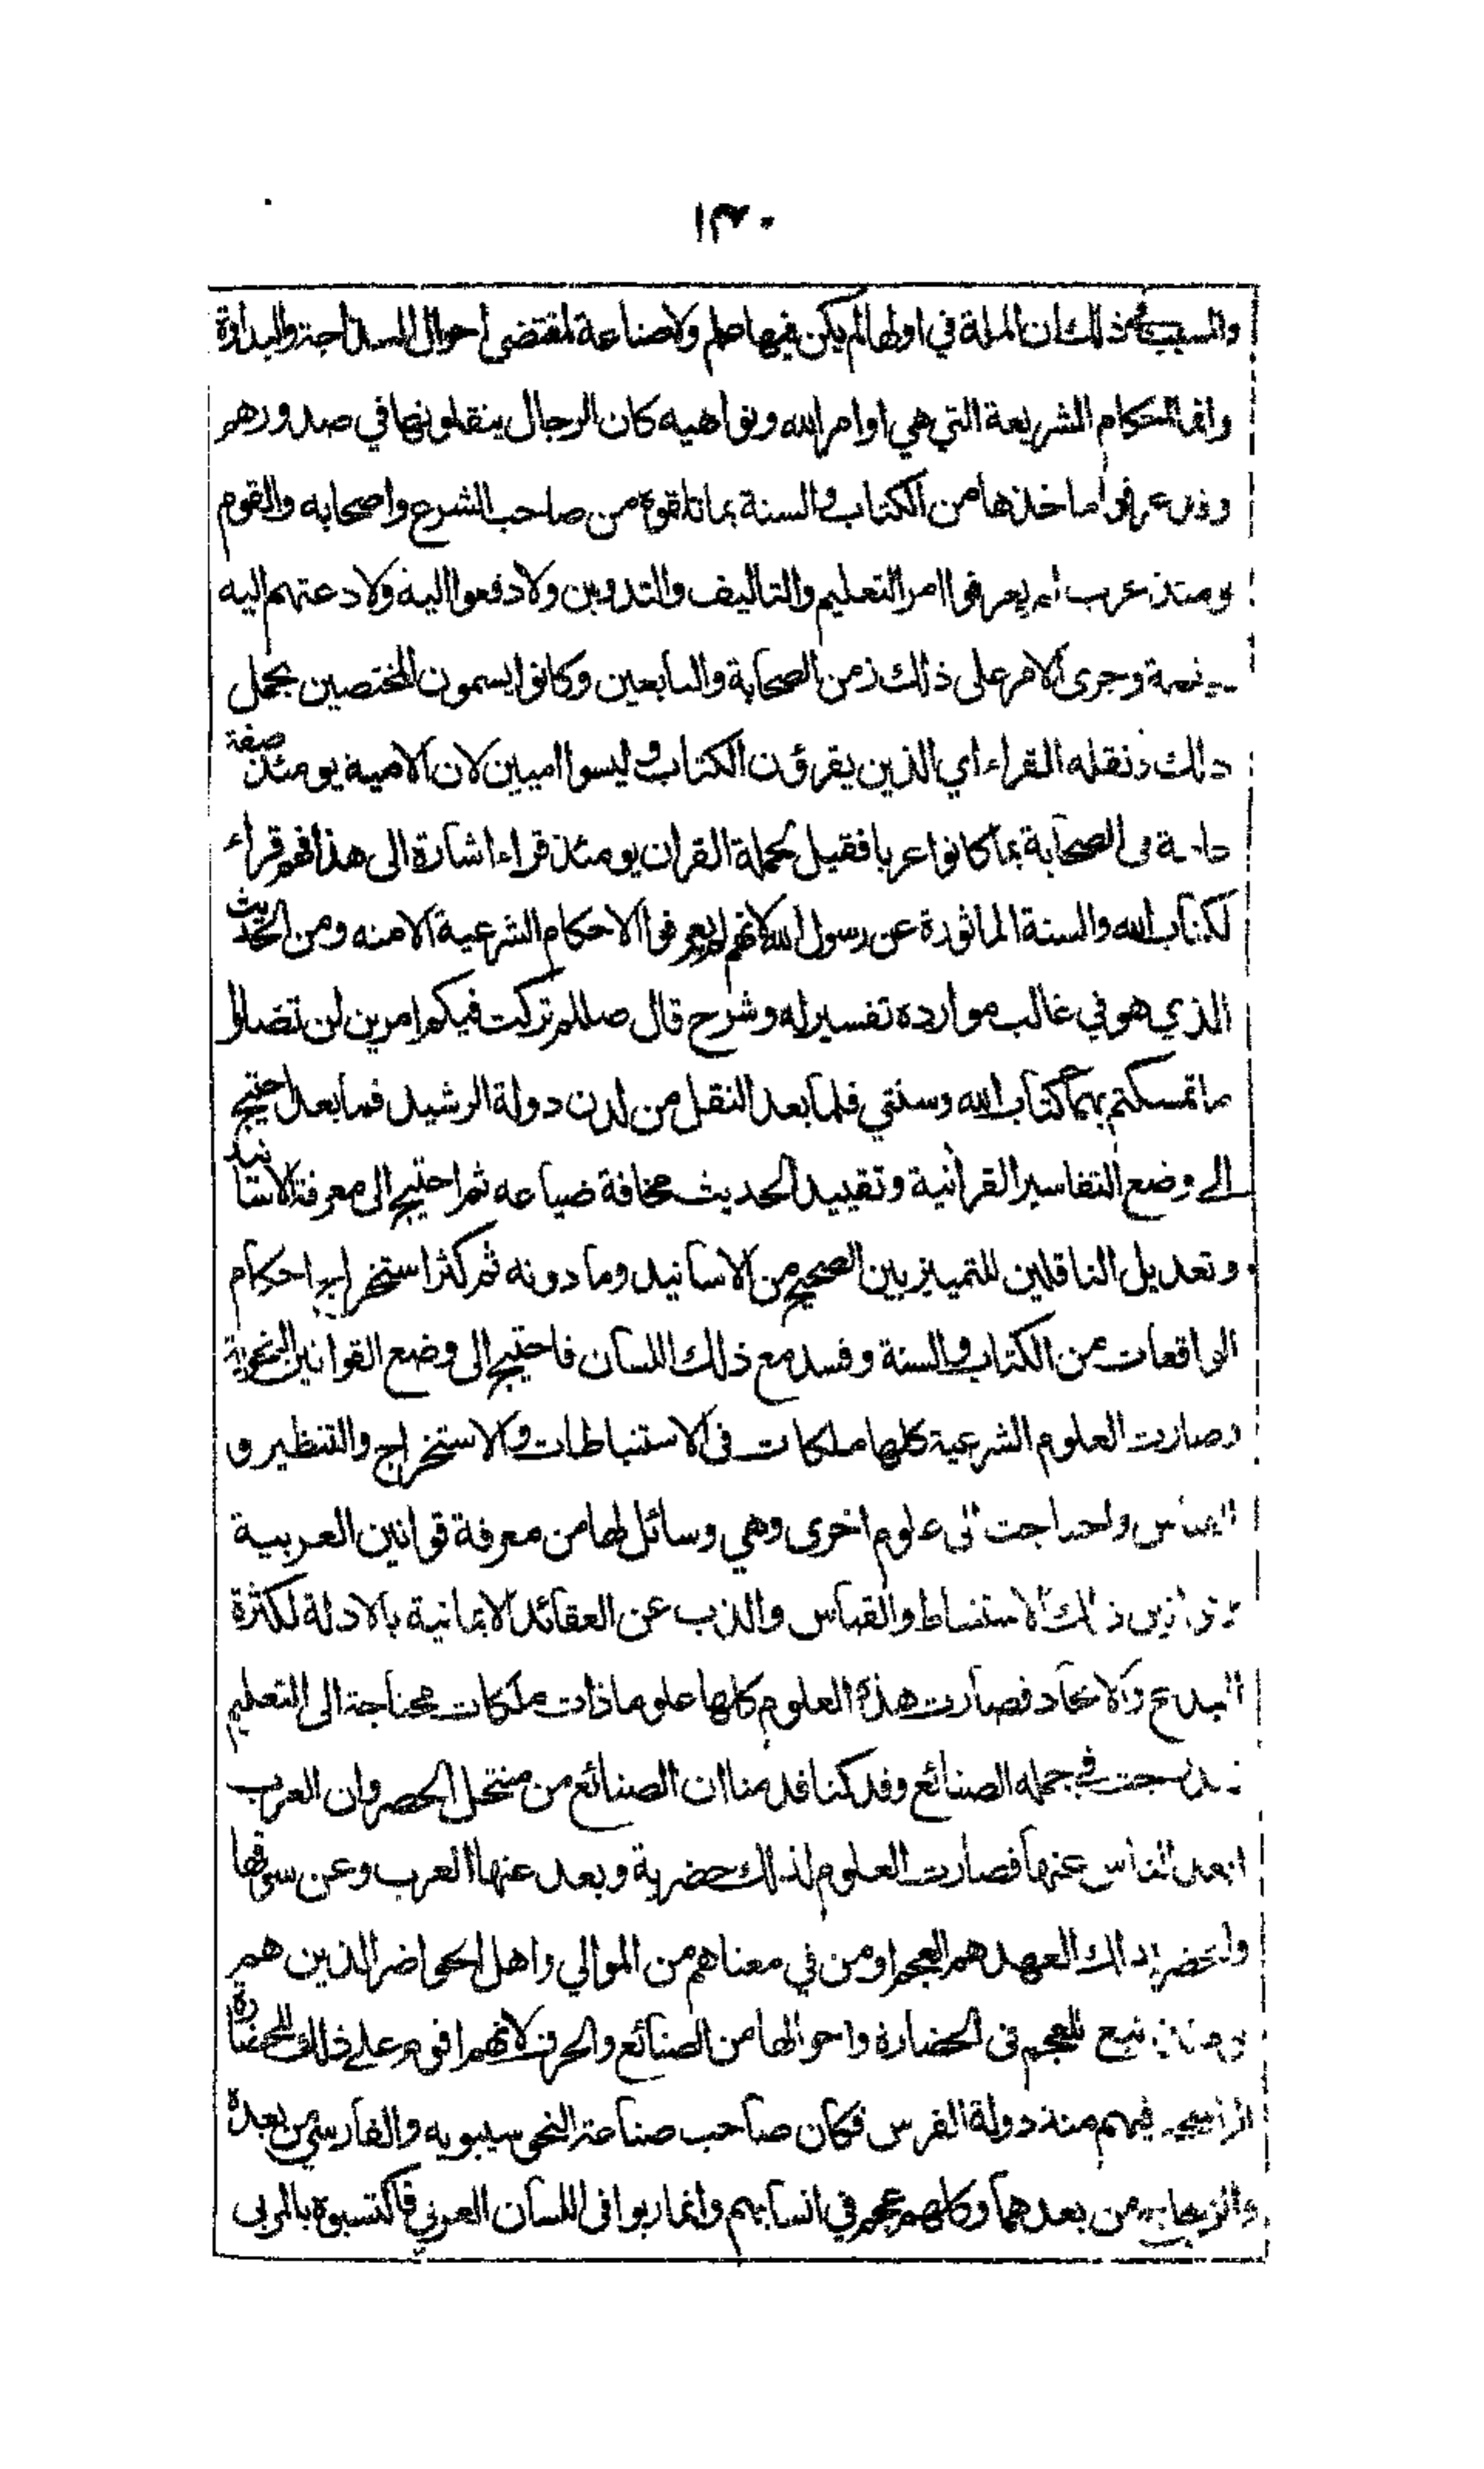 ١٣٠
والسبب في ذلك ان الملة في اولها لم يكن فيها علم ولا صناعة لمقتضى احوال السذاجة والبداوة
وانما احكام الشريعة التي هي اوامر الله ونواهيه كان الرجال ينقلونها في صدورهم
وقد عرفوا ماخذها من الكتاب والسنة بما تلقوه من صاحب الشرع واصحابه والقوم
يومئذ عرب لم يعرفوا امر التعليم والتاليف والتدوين ولا دفعوا اليه ولا دعتهم اليه
وجرى الامر على ذلك زمن الصحابة والتابعين وكانوا يسمون المختصين بحمل
ذلك ونقله القراء اي الذين يقرؤن الكتاب وليسوا اميين لان الامية يومئذ صفة
عامة في الصحابة بما كانوا عربا فقيل لحملة القران يومئذ قراء اشارة الى هذا فهم قراء
لكتاب الله والسنة الماثورة عن رسول الله لانهم لم يعرفوا الاحكام الشرعية الا منه ومن الحديث
الذي هو في غالب موارده تفسير له وشرح قال صللم تركت فيكم امرين لن تضلوا
ما تمسكتم بهما كتاب الله وسنتي فلما بعد النقل من لدن دولة الرشيد فما بعد احتيج
الى وضع التفاسير القرآنية وتقييد الحديث مخافة ضياعه ثم احتيج الى معرفة الاسانيد
وتعديل الناقلين للتمييز بين الصحيح من الاسانيد وما دونه ثم كثر استخراج احكام
الواقعات من الكتاب والسنة وفسد مع ذلك اللسان فاحتيج الى وضع القوانين النحوية
وصارت العلوم الشرعية كلها ملكات في الاستنباطات والاستخراج والتنظير و
القياس واحتاجت الى علوم اخرى وهي وسائل لها من معرفة قوانين العربية
وقوانين ذلك الاستنباط والقياس والذب عن العقائد الايمانية بالادلة لكثرة
البدع والالحاد فصارت هذه العلوم كلها علوما ذات ملكات محتاجة الى التعليم
فاندرجت في جملة الصنائع وقد كنا قدمنا ان الصنائع من منتحل الحضر وان العرب
ابعد الناس عنها فصارت العلوم لذلك حضرية وبعد عنها العرب وعن سوقها
والحضر لذلك العهد هم العجم او من في معناهم من الموالي واهل الحواضر الذين هم
يومئذ تبع للعجم في الحضارة واحوالها من الصنائع والحرف لانهم اقوم على ذلك للحضارة
الراسخة فيهم منذ دولة الفرس فكان صاحب صناعة النحو سيبويه والفارسي من بعده
والزجاج من بعدهما وكلهم عجم في انسابهم وانما ربوا في اللسان العربي فاكتسبوه بالمربى